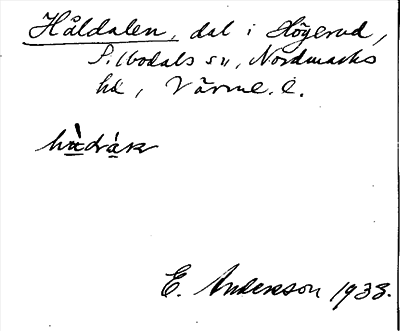 Håldalen, dal i Högerud,
S. Ibodals sn, Nordmarks
hd, Värml. l.
E. Andersson 1933.